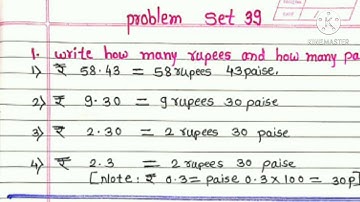 problem set 39
1. write how many rupees and how many pa
1) ₹ 58.43 = 58 rupees 43 paise.
2) ₹ 9.30 = 9 rupees 30 paise
3) ₹ 2.30 = 2 rupees 30 paise
4) ₹ 2.3 = 2 rupees 30 paise
[Note: ₹ 0.3 = paise 0.3 x 100 = 30p]
KINEMASTER